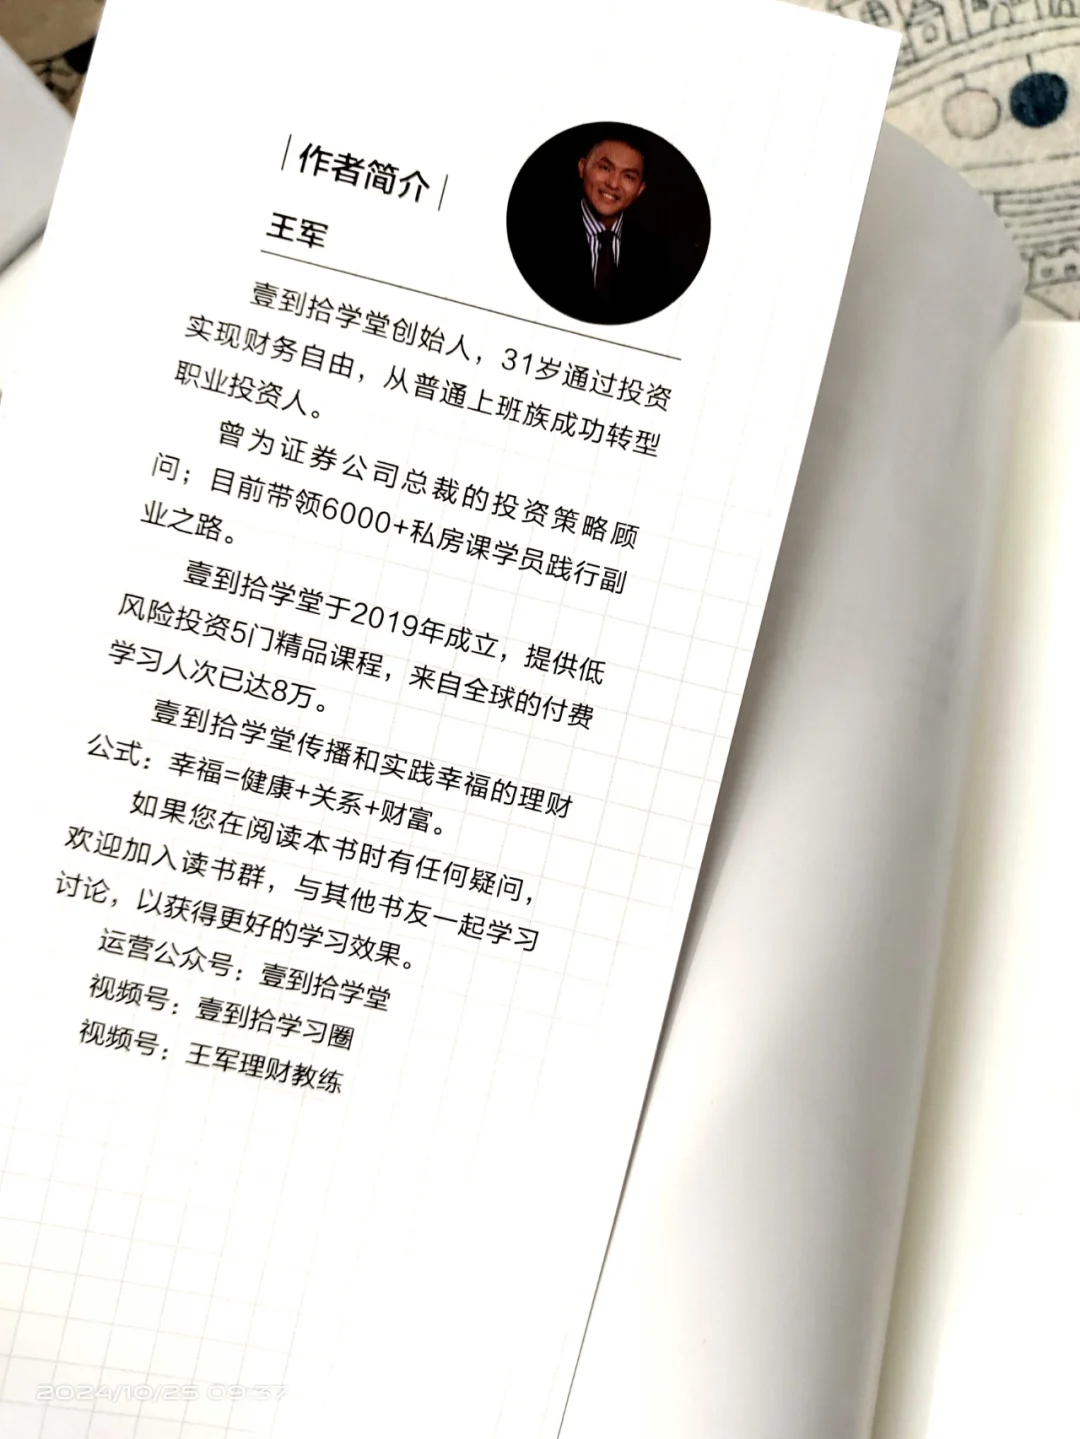 |作者简介|
王军
壹到拾学堂创始人，31岁通过投资
实现财务自由，从普通上班族成功转型
职业投资人。
曾为证券公司总裁的投资策略顾
问；目前带领6000+私房课学员践行副
业之路。
壹到拾学堂于2019年成立，提供低
风险投资5门精品课程，来自全球的付费
学习人次已达8万。
壹到拾学堂传播和实践幸福的理财
公式：幸福=健康+关系+财富。
如果您在阅读本书时有任何疑问，
欢迎加入读书群，与其他书友一起学习
讨论，以获得更好的学习效果。
运营公众号：壹到拾学堂
视频号：壹到拾学习圈
视频号：王军理财教练
2024/10/25 09:37